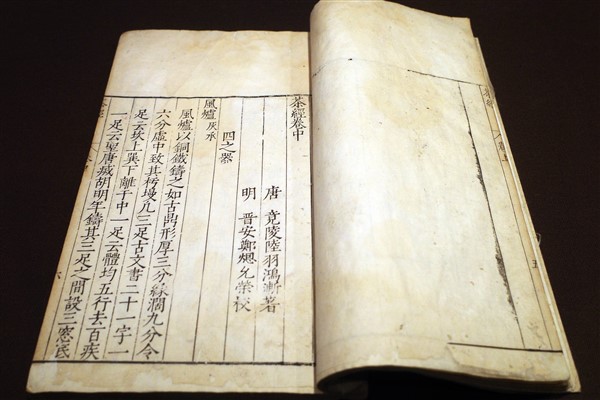 茶經卷中
唐 竟陵陸羽鴻漸著
明 晉安鄭熜允榮校
四之器
風爐灰承
風爐以銅鐵鑄之如古鼎形厚三分緣濶九分令
六分虛中致其杇墁凡三足古文書二十一字一
足云坎上巽下離于中一足云體均五行去百疾
一足云聖唐滅胡明年鑄其三足之間設三窓底